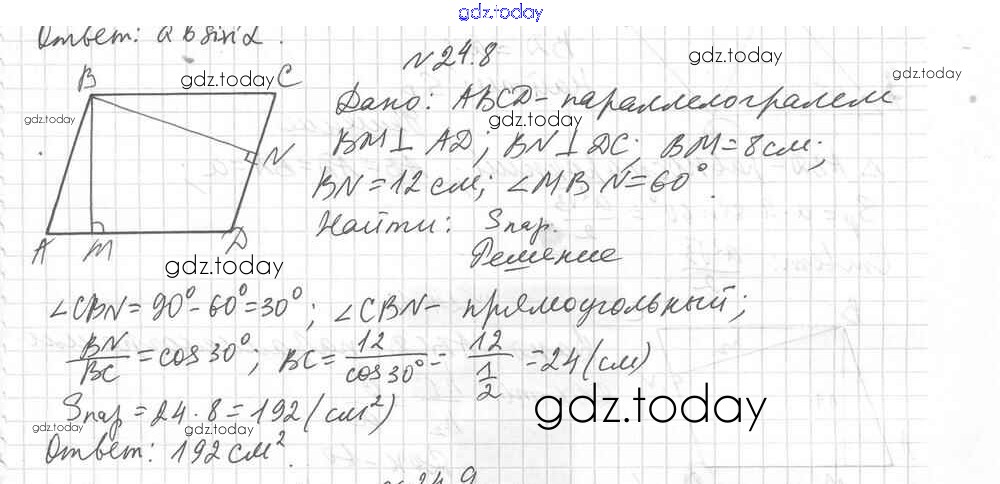 gdz.today
Ответ: a b sin α.
№ 24.8
gdz.today
gdz.today
B
gdz.today
C
gdz.today
Дано: ABCD – параллелограмм
gdz.today
BM ⊥ AD; BN ⊥ DC; BM = 8 см;
N
BN = 12 см; ∠MBN = 60°.
Найти: Sпар.
A M D
Решение
gdz.today
∠CBN = 90° - 60° = 30°; ∠CBN – прямоугольный;
BN/BC = cos 30°; BC = 12/cos 30° = 12/(1/2) = 24 (см)
Sпар = 24 · 8 = 192 (см²)
gdz.today
gdz.today
gdz.today
Ответ: 192 см².
24.9